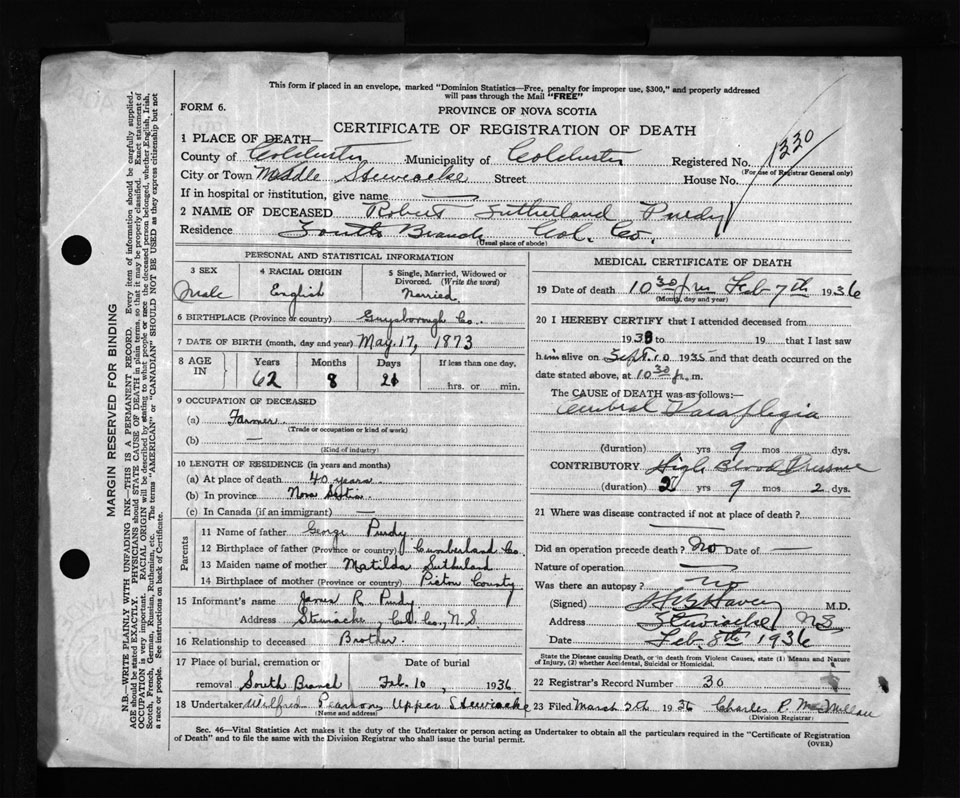 This form if placed in an envelope, marked "Dominion Statistics—Free, penalty for improper use, $300," and properly addressed
will pass through the Mail "FREE"
FORM 6.
PROVINCE OF NOVA SCOTIA
CERTIFICATE OF REGISTRATION OF DEATH
1 PLACE OF DEATH—
County of Colchester Municipality of Colchester Registered No. 1330
(For use of Registrar General only)
City or Town Middle Stewiacke Street House No.
If in hospital or institution, give name —
2 NAME OF DECEASED Robert Sutherland Purdy
Residence South Branch Col. Co.
(Usual place of abode)
PERSONAL AND STATISTICAL INFORMATION
3 SEX Male
4 RACIAL ORIGIN English
5 Single, Married, Widowed or Divorced. (Write the word) Married
6 BIRTHPLACE (Province or country) Guysborough Co.
7 DATE OF BIRTH (month, day and year) May 17, 1873
8 AGE IN Years 62 Months 8 Days 21 If less than one day, ... hrs. or ... min.
9 OCCUPATION OF DECEASED
(a) Farmer
(Trade or occupation or kind of work)
(b) —
(Kind of industry)
10 LENGTH OF RESIDENCE (in years and months)
(a) At place of death 40 years
(b) In province Nova Scotia
(c) In Canada (if an immigrant) —
Parents
11 Name of father George Purdy
12 Birthplace of father (Province or country) Cumberland Co.
13 Maiden name of mother Matilda Sutherland
14 Birthplace of mother (Province or country) Pictou County
15 Informant's name James R. Purdy
Address Stewiacke, Col. Co., N.S.
16 Relationship to deceased Brother.
17 Place of burial, cremation or removal South Branch Date of burial Feb. 10, 1936
18 Undertaker Wilfred Pearson, Upper Stewiacke
(Name and address)
MEDICAL CERTIFICATE OF DEATH
19 Date of death 10 30 p.m Feb 7th 1936
(Month, day and year)
20 I HEREBY CERTIFY that I attended deceased from
193 to 19 that I last saw
him alive on Sept. 10 1935 and that death occurred on the
date stated above, at 10 30 p. m.
The CAUSE OF DEATH was as follows:—
Cerebral Paraplegia
(duration) yrs 9 mos dys.
CONTRIBUTORY High Blood Pressure
(duration) 2 yrs 9 mos 2 dys.
21 Where was disease contracted if not at place of death?
Did an operation precede death? No Date of —
Nature of operation —
Was there an autopsy? no
(Signed) M.D.
Address Stewiacke N.S.
Date Feb. 8th 1936
State the Disease causing Death, or in death from Violent Causes, state (1) Means and Nature
of Injury, (2) whether Accidental, Suicidal or Homicidal.
22 Registrar's Record Number 30
23 Filed March 7th 1936 Charles P. McMillan
(Division Registrar)
Sec. 46—Vital Statistics Act makes it the duty of the Undertaker or person acting as Undertaker to obtain all the particulars required in the "Certificate of Registration
of Death" and to file the same with the Division Registrar who shall issue the burial permit.
(OVER)
MARGIN RESERVED FOR BINDING
N.B.—WRITE PLAINLY WITH UNFADING INK—THIS IS A PERMANENT RECORD. Every item of information should be carefully supplied.
AGE should be stated EXACTLY. PHYSICIANS should STATE CAUSE OF DEATH in plain terms, so that it may be properly classified. Exact statement of
OCCUPATION is very important. RACIAL ORIGIN will be described by stating to what people or race the deceased person belonged, whether English, Irish,
Scotch, French, German, Russian, Ruthenian, etc. The terms "AMERICAN" or "CANADIAN" SHOULD NOT BE USED as they express citizenship but not
a race or people. See instructions on back of Certificate.